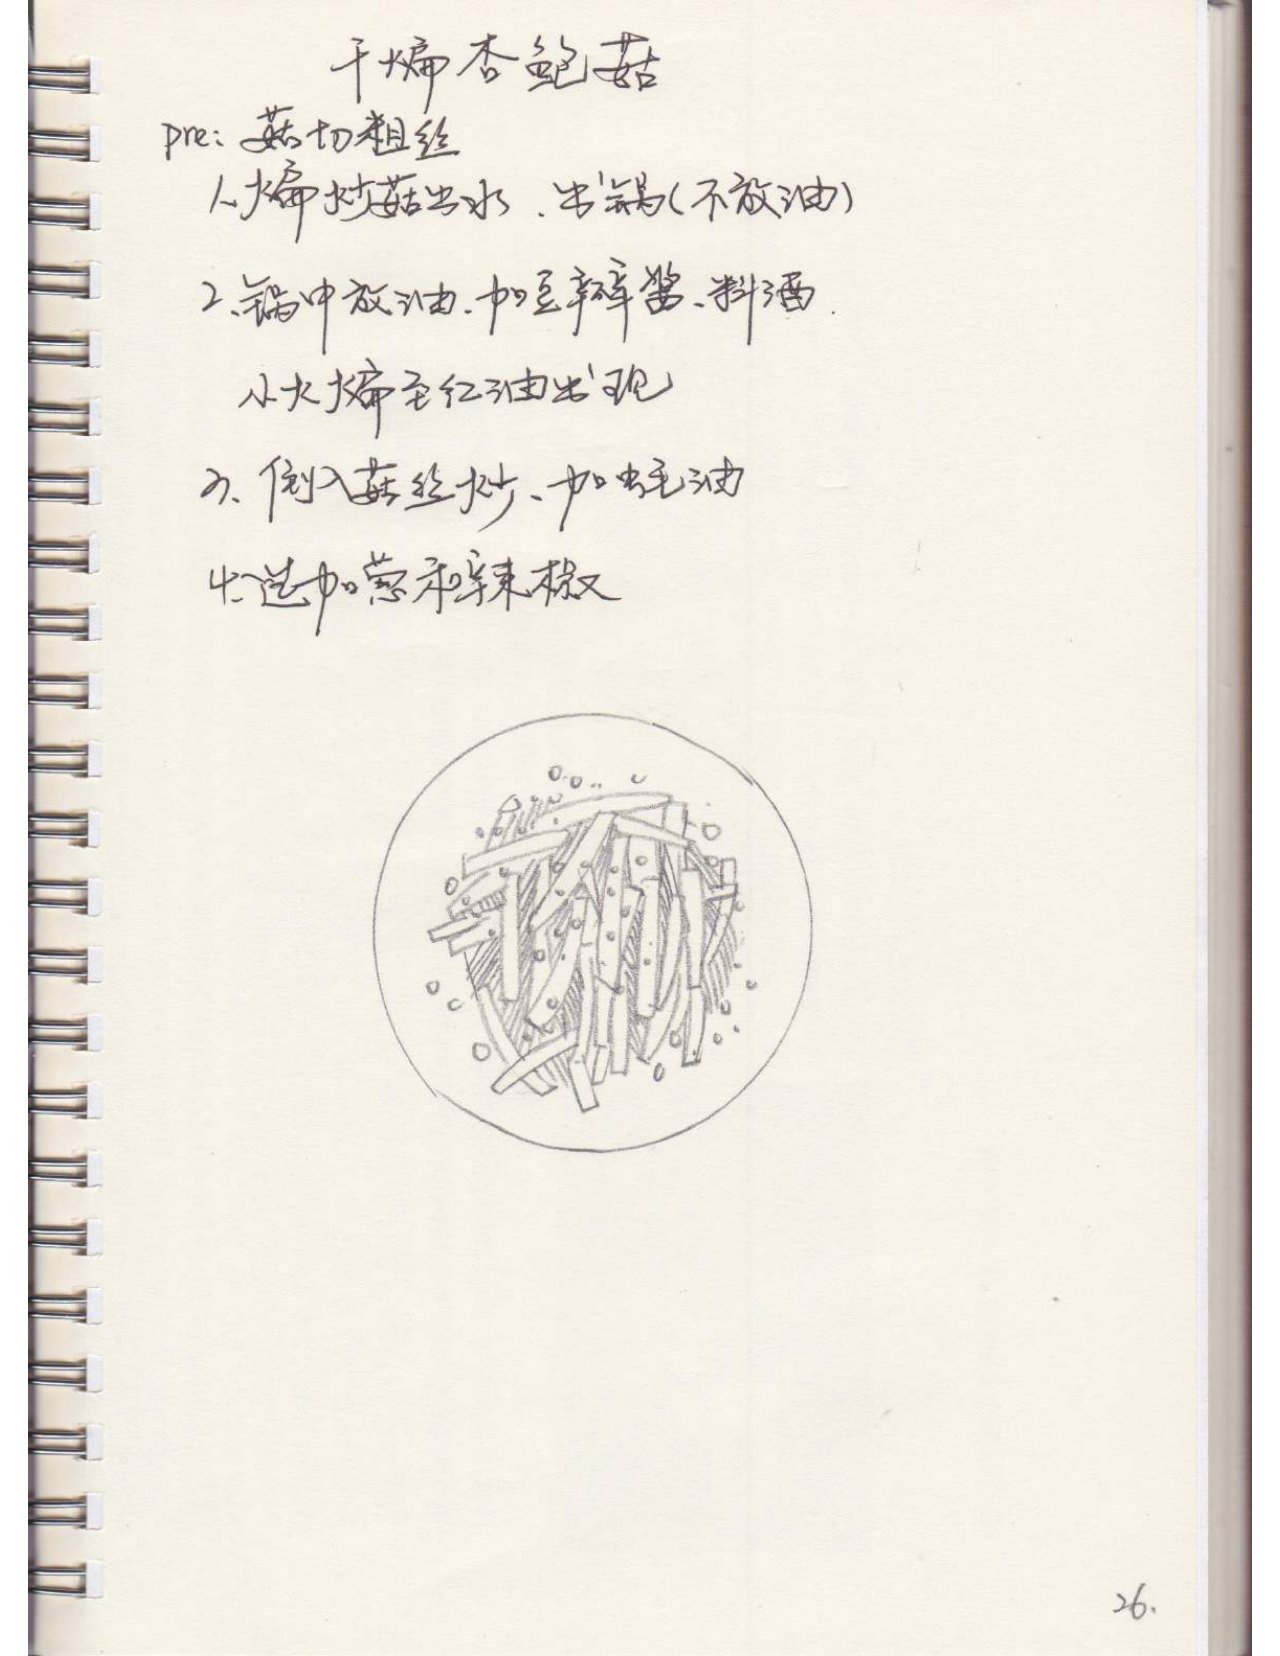 干煸杏鲍菇
pre: 菇切粗丝
1、煸炒菇出水、出锅(不放油)
2、锅中放油、加豆瓣酱、料酒.
小火煸至红油出现
3、倒入菇丝炒、加蚝油
4、选加葱和辣椒
26.